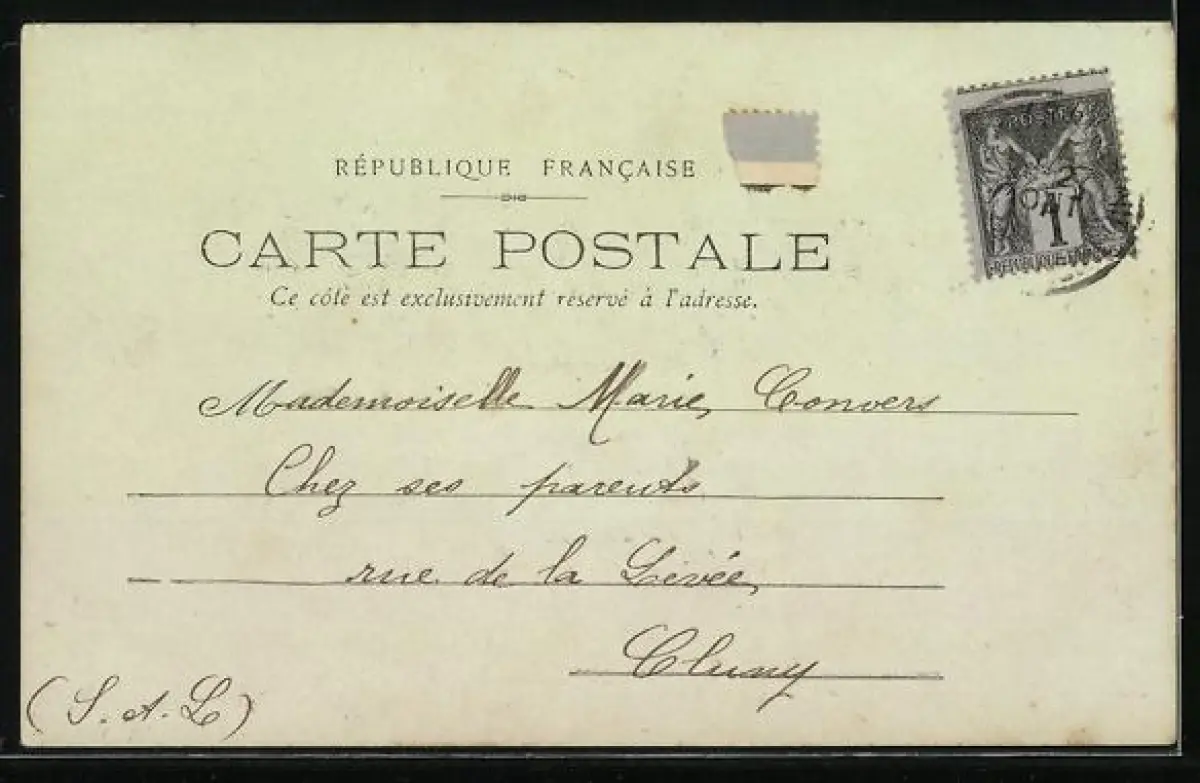 RÉPUBLIQUE FRANÇAISE
POSTES
1
CARTE POSTALE
Ce côté est exclusivement réservé à l'adresse.
Mademoiselle Marie Convers
Chez ses parents
rue de la Levée
Cluny
(S. A. L)